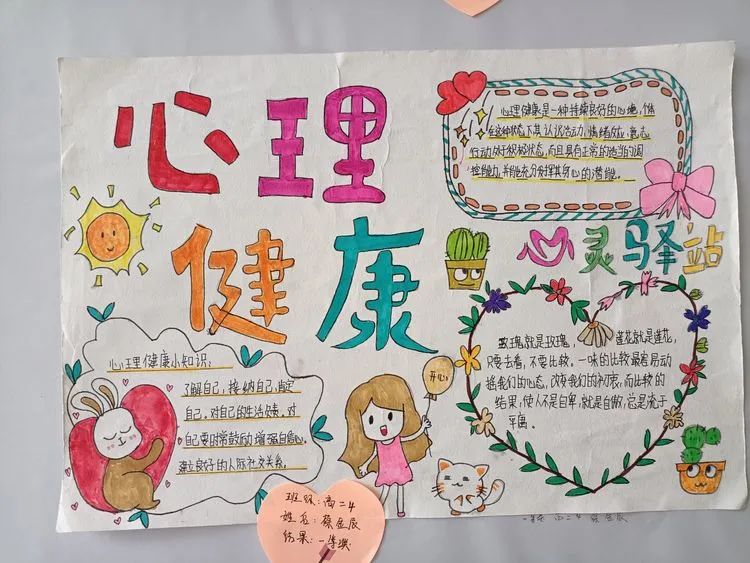 心理
健康
心理健康是一种持续良好的心境,个体
在这种状态下其认识活动,情绪效应,意志
行动处于积极状态,而且具有正常的适当的调
控能力,并能充分发挥其身心的潜能。
心灵驿站
心理健康小知识:
了解自己,接纳自己,肯定
自己。对自己的生活负责。对
自己要时常鼓励增强自信心。
建立良好的人际社交关系。
开心
玫瑰就是玫瑰,莲花就是莲花,
只要去看,不要比较。一味的比较最容易动
摇我们的心态,改变我们的初衷,而比较的
结果,使人不是自卑,就是自傲,总是流于
平庸。
班级:高二4
姓名:蔡金辰
结果:一等奖
一等奖 高二4 蔡金辰